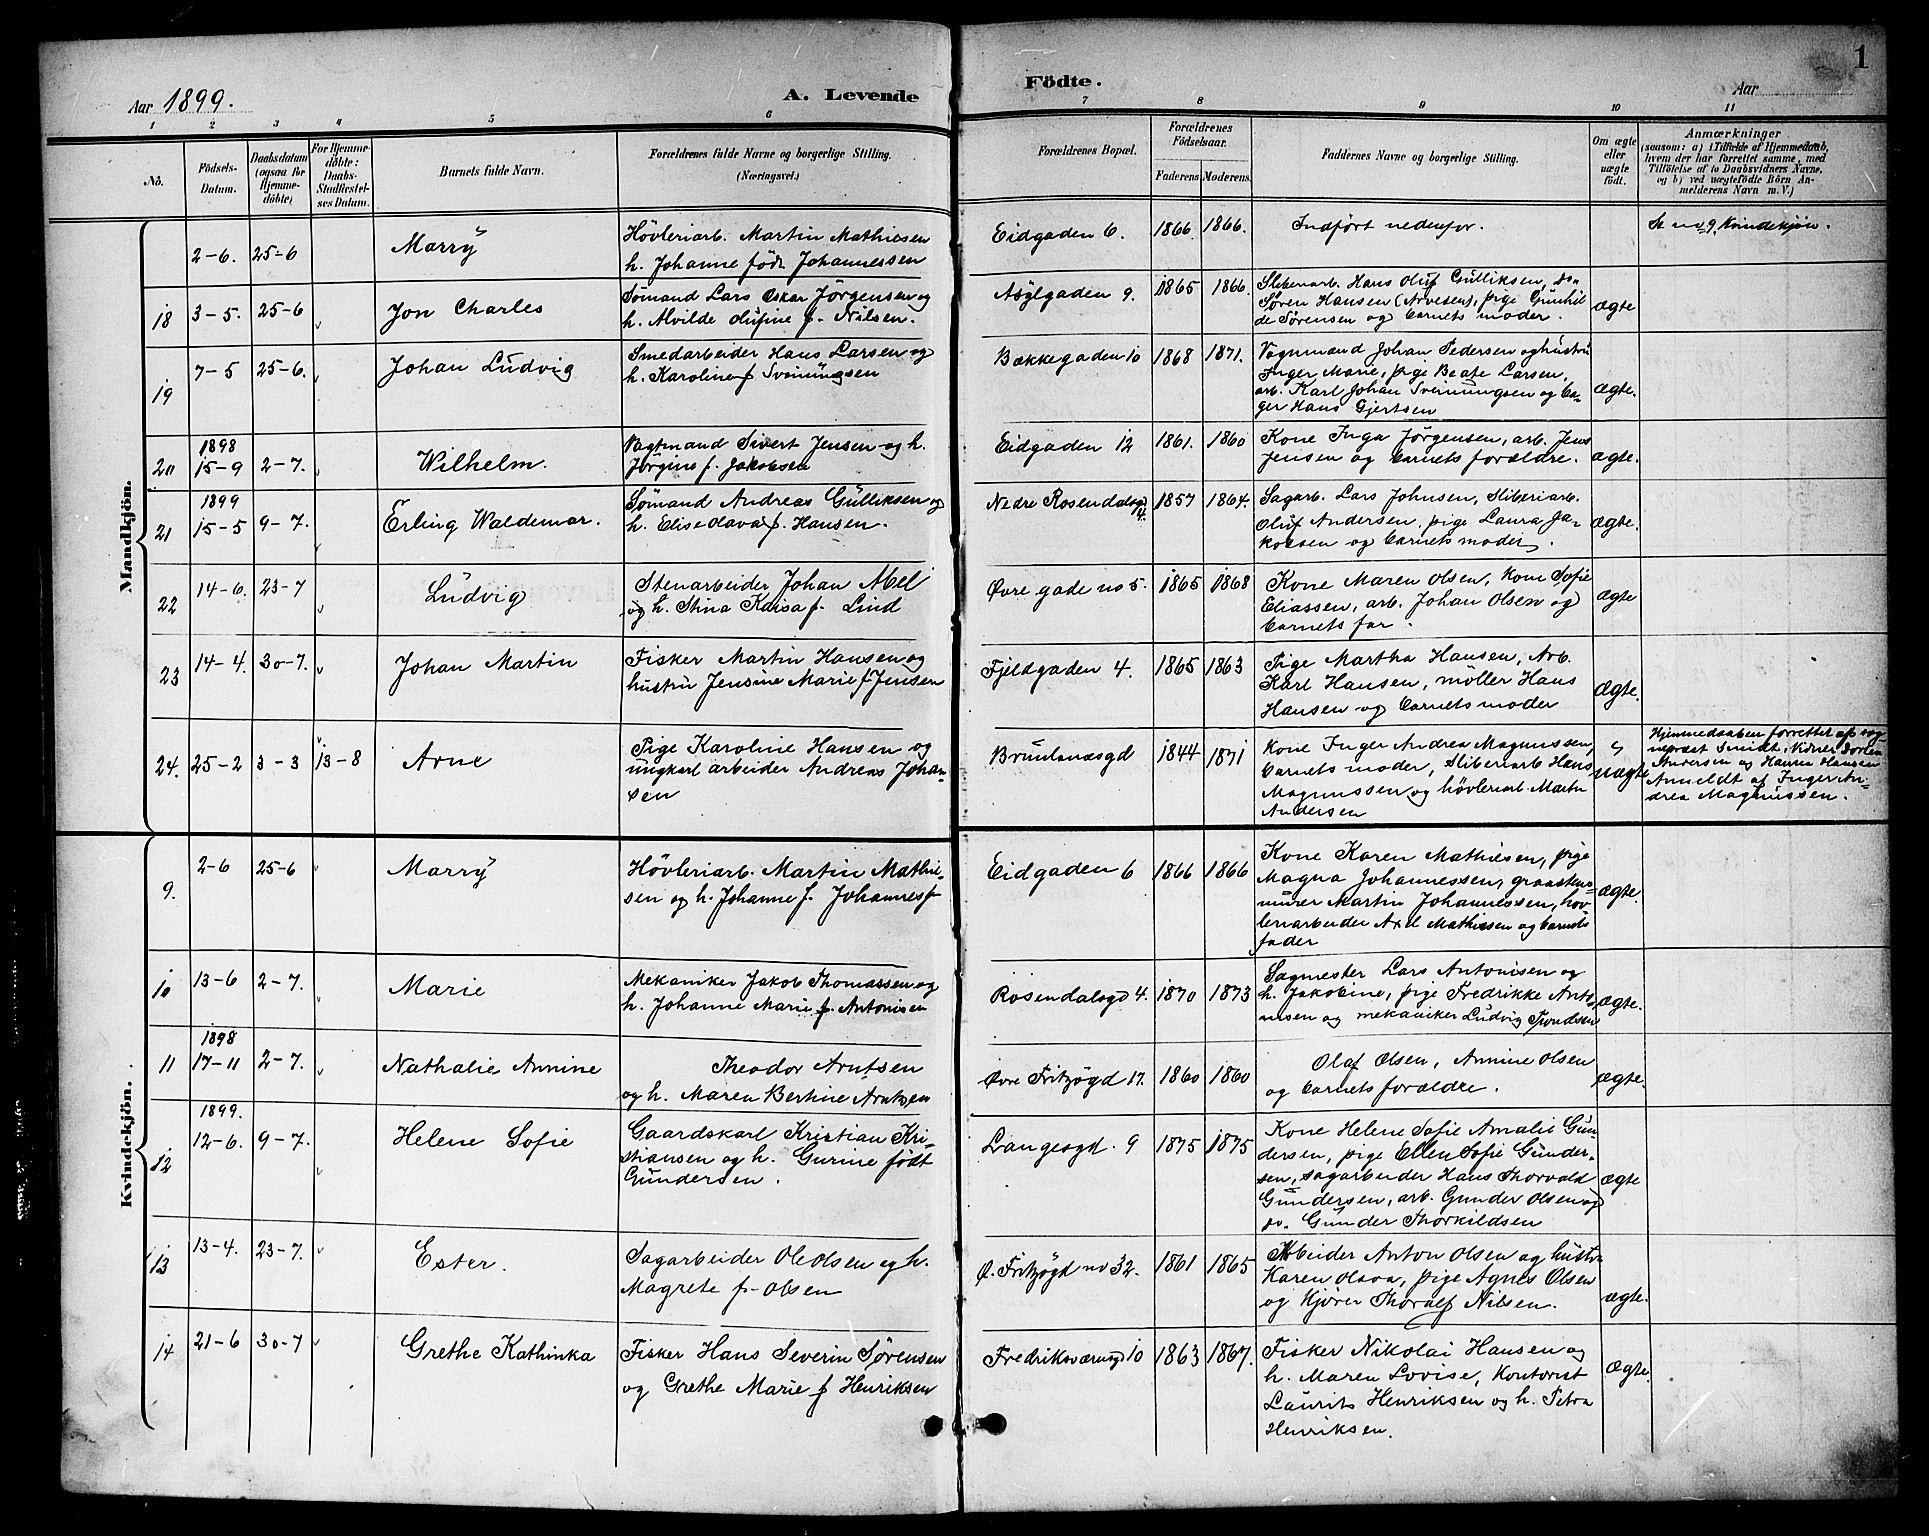 1
Aar 1899.
A. Levende
Födte.
Aar
1 2 3 4 5 6 7 8 9 10 11
No.
Födsels-
Datum.
Daabsdatum
(ogsaa for
Hjemme-
döbte)
For Hjemme-
döbte:
Daabs-
Stadfæstel-
ses Datum.
Barnets fulde Navn.
Forældrenes fulde Navne og borgerlige Stilling.
(Næringsvei.)
Forældrenes Bopæl.
Forældrenes
Födselsaar.
Faderens Moderens
Faddernes Navne og borgerlige Stilling.
Om ægte
eller
uægte
født.
Anmærkninger
(saasom: a) i Tilfælde af Hjemmedaab,
hvem der har forrettet samme, med
Tilföielse af to Daabsvidners Navne,
og b) ved uægtefödte Börn An-
melderens Navn m. V.)
Mandkjön.
2-6. 25-6
Marry
Hövleriarb. Martin Mathiesen
h. Johanne född Johannessen
Eidgaden 6. 1866. 1866.
Indført nedenfor.
Se no 9. Kvindekjön.
18 3-5. 25-6
Jon Charles
Sømand Lars Oskar Jörgensen og
h. Alvilde Olufine f. Nilsen.
Asylgaden 9. 1865 1866.
Sliberiarb. Hans Oluf Gulliksen, do
Søren Hansen (Arvesen), pige Gunhil
de Sørensen og barnets moder.
ægte
19 7-5 25-6.
Johan Ludvig
Smedarbeider Hans Larsen og
h. Karoline f Sveinungsen
Bækkegaden 10 1868 1871.
Vognmand Johan Pedersen og hustru
Inger Marie, pige Beate Larsen,
arb. Karl Johan Sveinungsen og ba-
ger Hans Gjertsen
ægte.
20 1898
15-9 2-7.
Wilhelm.
Vagtmand Sivert Jensen og h.
Jørgine f. Jakobsen
Eidgaden 12 1861. 1860
Kone Inga Jörgensen, arb. Jens
Jensen og barnets forældre.
ægte.
21 1899
15-5 9-7.
Erling Waldemar.
Sømand Andreas Gulliksen og
h. Elise Olava f. Hansen.
Nedre Rosendalsgd 4. 1857 1864.
Sagarb. Lars Johnsen, Sliberiarb.
Oluf Andersen, pige Laura Ja-
kobsen og barnets moder.
ægte.
22 14-6. 23-7
Ludvig
Stenarbeider Johan Abel
og h. Stina Kaisa f. Lind
Øvre gade no 5. 1865 1868
Kone Maren Olsen, kone Sofie
Eliassen, arb. Johan Olsen og
barnets far.
ægte
23 14-4. 30-7.
Johan Martin
Fisker Martin Hansen og
hustru Jensine Marie f Jensen
Fjeldgaden 4. 1865 1863
Pige Martha Hansen, Arb.
Karl Hansen, møller Hans
Hansen og barnets moder
Ægte.
24. 25-2 3-3 13-8
Arne
Pige Karoline Hansen og
ungkarl arbeider Andreas Johan-
sen
Brunlanæsgd 1844 1871
Kone Inger Andrea Magnussen,
barnets moder, Sliberiarb Hans
Magnussen og høvleriarb. Martin
Andersen
uægte
Hjemmedaaben forrettet af sog-
nepræst Smidt. Vidner
Andersen og Hanna Hansen
Anmeldt af Inger An-
drea Magnussen.
Kvindekjön.
9. 2-6 25-6
Marry
Hövleriarb. Martin Mathie-
sen og h. Johanne f. Johannesf
Eidgaden 6 1866 1866
Kone Karen Mathiesen, pige
Magna Johannessen, graastens-
murer Martin Johannessen, høv
leriarbeider Axel Mathiesen og barnets
fader
ægte.
10 13-6 2-7.
Marie
Mekaniker Jakob Thomassen og
h. Johanne Marie f. Antonisen
Rosendalsgd 4. 1870 1873
Sagmester Lars Antonisen og
h. Jakobine, pige Fredrikke Anto-
nisen og mekaniker Ludvig Trondsen
ægte.
11 1898
17-11 2-7.
Nathalie Annine
Theodor Arntsen
og h. Maren Bertine Arntzen
Øvre Fritzøgd 17. 1860 1860
Olaf Olsen, Annine Olsen
og barnets forældre.
ægte.
12 1899.
12-6. 9-7.
Helene Sofie
Gaardskarl Kristian Kri-
stiansen og h. Gurine født
Gundersen.
Langesgd. 9 1875 1875
Kone Helene Sofie Amalie Gun-
dersen, pige Ellen Sofie Gunder-
sen, sagarbeider Hans Thorvald
Gundersen, arb. Gunder Olsen og
do. Gunder Thorkildsen
ægte
13 13-4. 23-7.
Ester.
Sagarbeider Ole Olsen og h.
Magrete f. Olsen
Ø. Fritzøgd no 32. 1861 1865
Arbeider Anton Olsen og hustru
Karen Olava, pige Agnes Olsen
og Kjører Thoralf Nilsen.
ægte.
14 21-6 30-7
Grethe Kathinka
Fisker Hans Severin Sørensen
og Grethe Marie f Henriksen
Fredriksværnsgd 10 1863 1867.
Fisker Nikolai Hansen og
h. Maren Lovise, Kontorist
Laurits Henriksen og h. Petra
Henriksen.
Ægte.